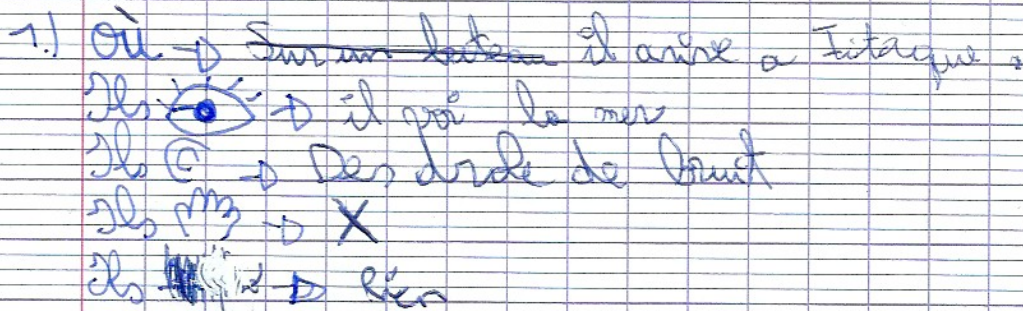 1.) Où → Sur un bateau il arive a Iitaque.
Ils → il voi la mer
Ils → Des drole de bruit
Ils → X
Ils → Rien